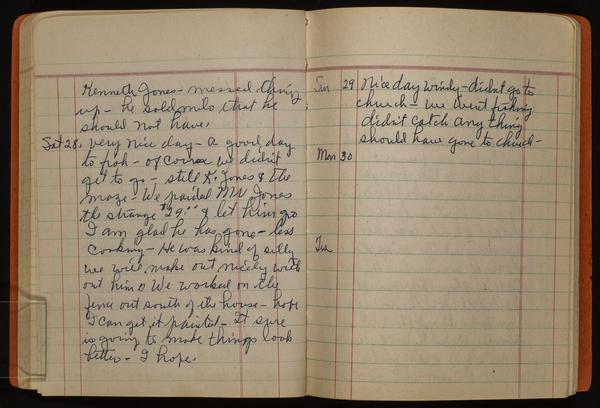 Kenneth Jones - messed thing
up - he sold milo that he
should not have.
Sat 28. Very nice day - a good day
to fish - of course we didn't
get to go - still K. Jones & the
maze - We paid MW Jones
the strange $29.00 & let him go
I am glad he has gone - less
cooking - He was kind of silly
we will make out nicely with
out him. We worked on the
fence out south of the house - hope
I can get it painted - It sure
is going to make things look
better - I hope.
Sun 29 Nice day windy - didnt go to
church - we went fishing
didn't catch any thing
should have gone to church -
Mon 30
Tue